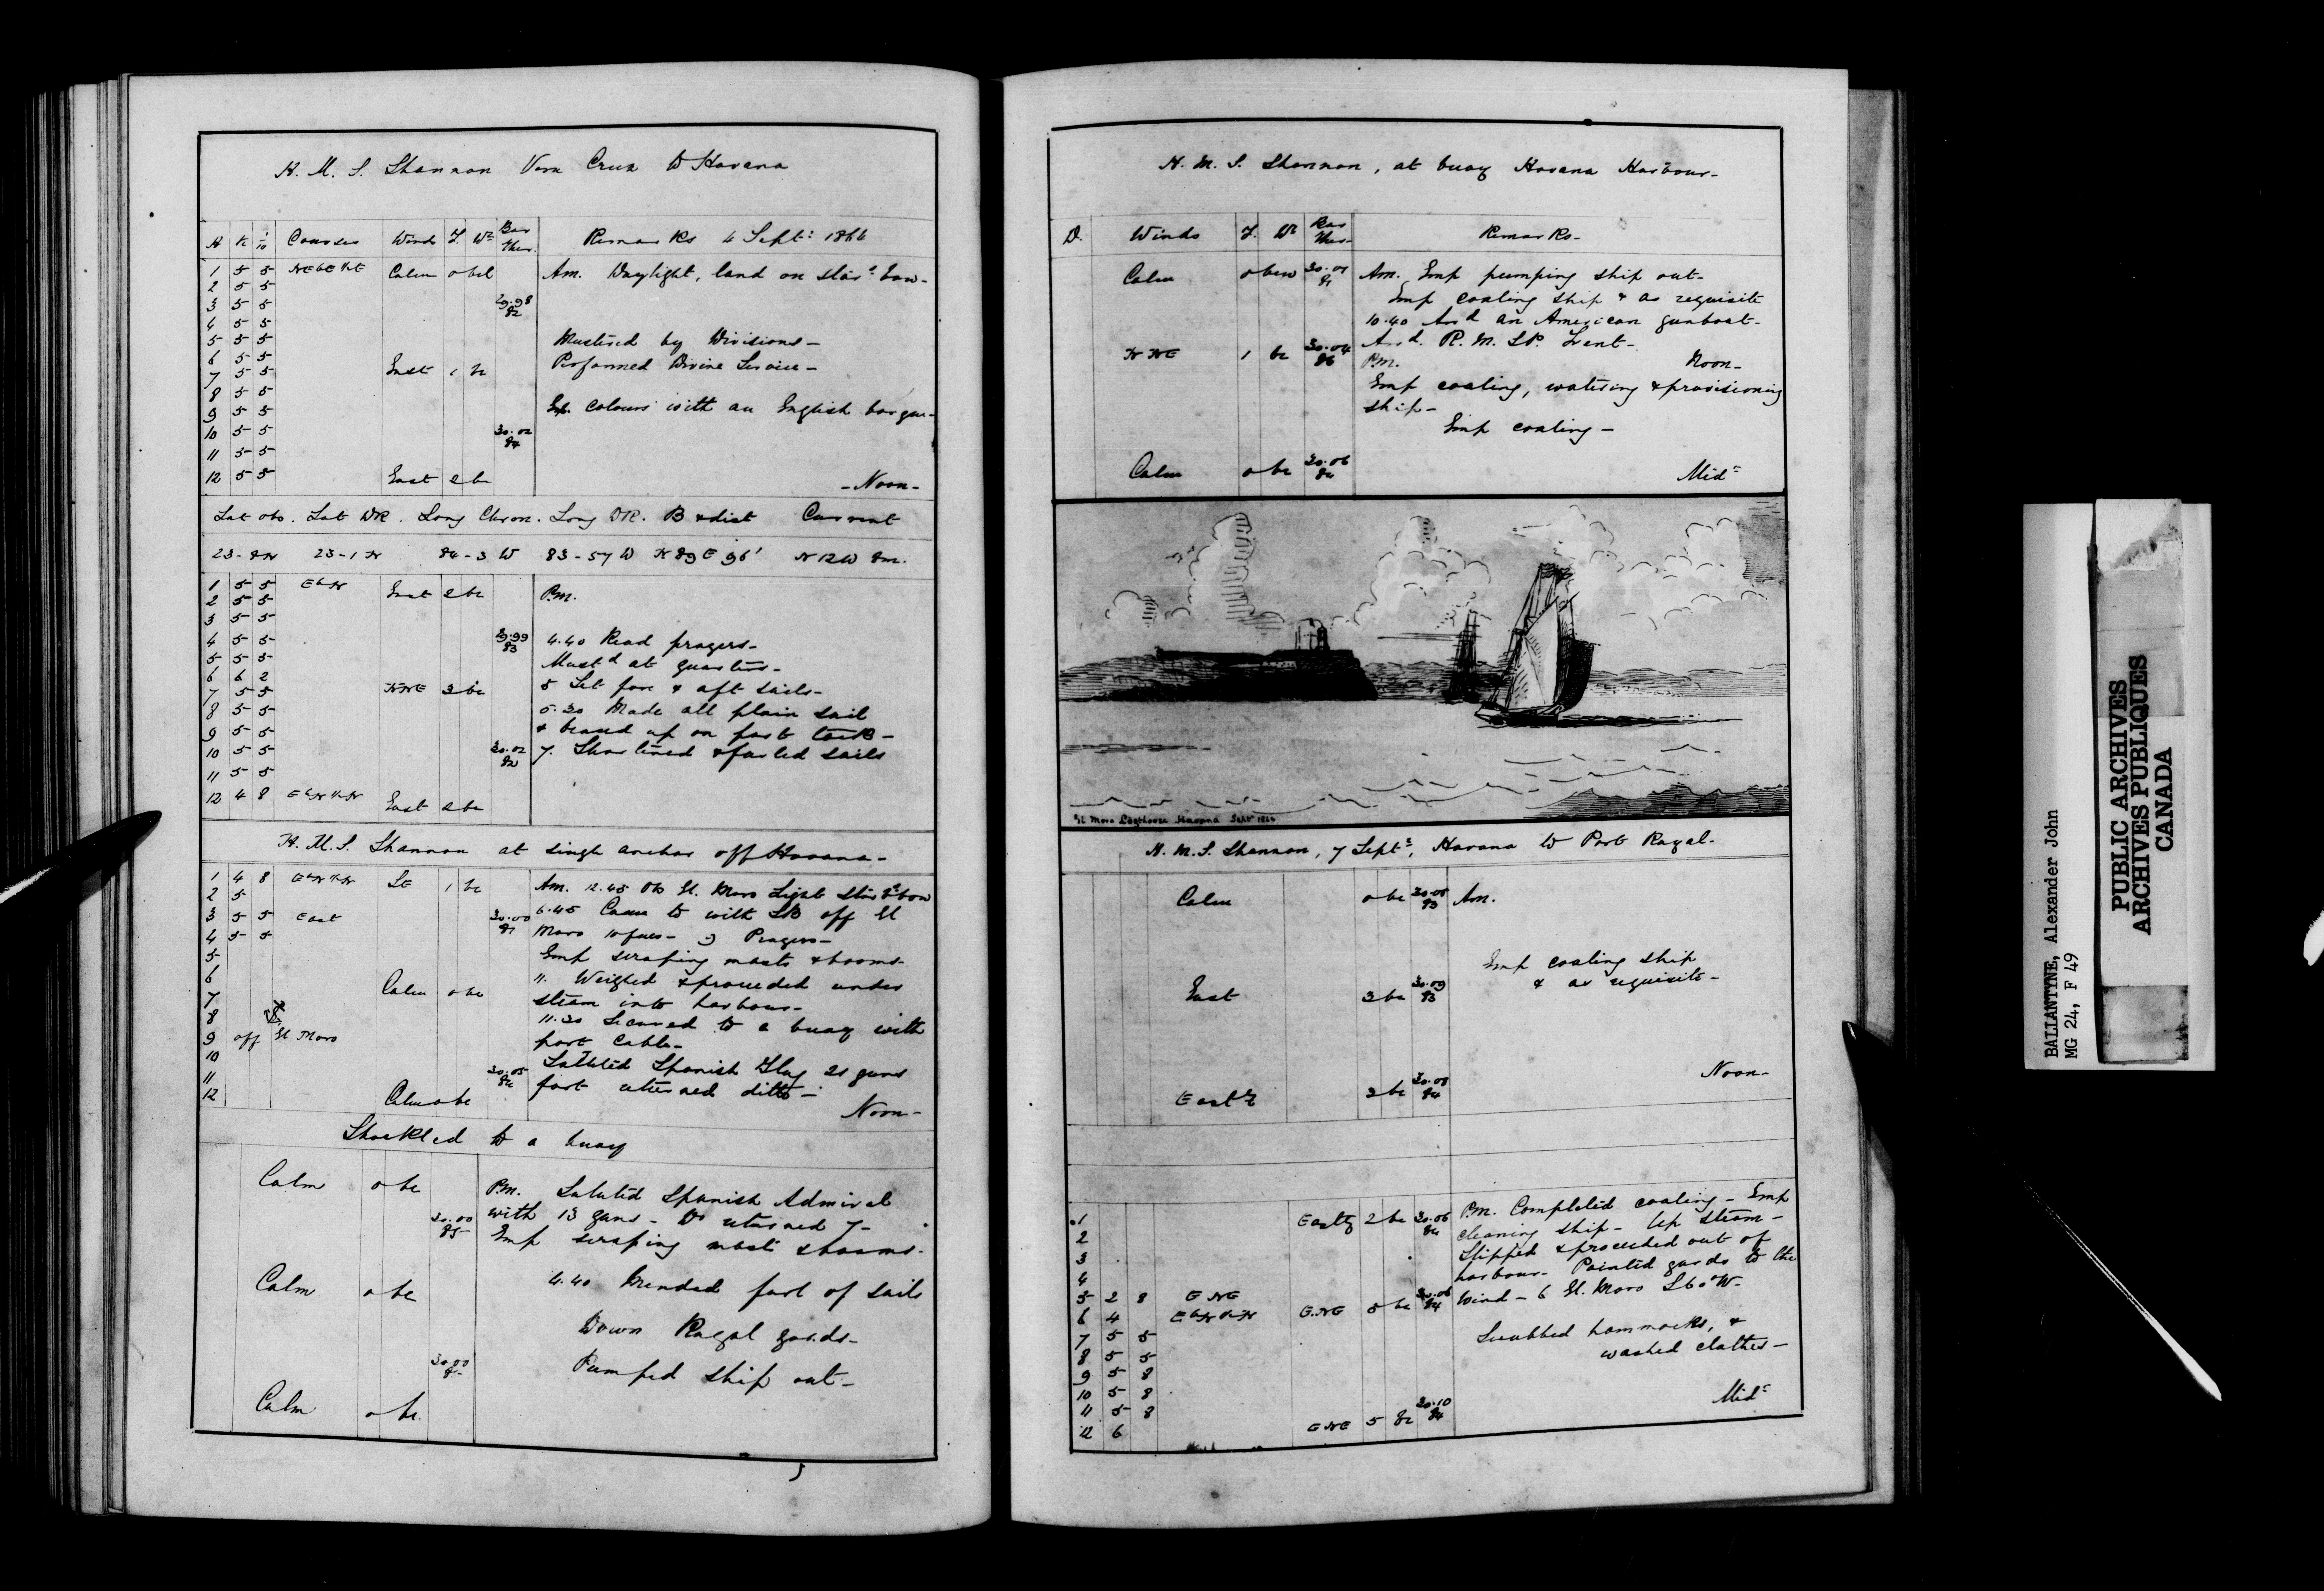 H. M. S. Shannon Vera Cruz to Havana
H K 1/10 Courses Winds F. Wr Bar Ther. Remarks 4 Septr 1864
1 5 5 NEbE½E Calm 0 bcl Am. Daylight, land on stard bow-
2 5 5
3 5 5 29.98 82
4 5 5
5 5 5 Mustered by Divisions-
6 5 5 Performed Divine Service-
7 5 5 East 1 bc
8 5 5
9 5 5 Ex. colours with an English barque-
10 5 5 30.02 84
11 5 5
12 5 5 East 2 bc -Noon-
Lat obs. Lat DR. Long Chron. Long DR. B & dist Current
23-8N 23-1N 84-3 W 83-57 W N 89 E 96' N12W 8m.
1 5 5 EbN East 2 bc P.m.
2 5 5
3 5 5
4 5 5 29.99 83 4.40 Read prayers-
5 5 5 Mustd at quarters-
6 6 2 5 Set fore & aft sails-
7 5 5 NNE 3 bc
8 5 5 5.30 Made all plain sail
9 5 5 & braced up on port tack-
10 5 5 30.02 82 7. Shortened & furled sails
11 5 5
12 4 8 EbN½N East 2 bc
H. M. S. Shannon at single anchor off Havana-
1 4 8 EbN½N SE 1 bc Am. 12.45 Obs El. Moro Light Stard bow
2 5
3 5 5 East 30.00 81 6.45 Came to with SB off El
4 5 5 Moro 10 fms- 9 Prayers-
5 Emp scraping masts & booms-
6 Calm 0 bc 11. Weighed & proceeded under
7 steam into harbour-
8 11.30 Secured to a buoy with
9 off El Moro port Cable-
10
11 30.05 84 Saluted Spanish Flag 21 guns
12 Calm 0 bc fort returned ditto- Noon-
Shackled to a buoy
Calm 0 bc P.m. Saluted Spanish Admiral
30.00 85 with 13 guns- Do returned 7-
Emp scraping masts & booms-
Calm 0 bc 4.40 Mended furl of sails
Down Royal yards-
30.00 Pumped ship out-
Calm 0 bc.
H. M. S. Shannon, at buoy Havana Harbour-
D. Winds F. Wr Bar Ther- Remarks-
Calm 0 bcw Am. Emp pumping ship out-
Emp coaling ship & as requisite
10.40 Arrd an American gunboat-
Arrd. R. M. SP. Trent-
NNE 1 bc 30.04 86 P.m. Noon-
Emp coaling, watering & provisioning
ship-
Emp coaling-
Calm 0 bc 30.06 84 Midt
El Moro Lighthouse Havana Septr 1864
H. M. S. Shannon, 7 Septr, Havana to Port Royal-
Calm 0 bc 30.05 83 Am.
Emp coaling ship
East 3 bc 30.09 83 & as requisite-
Noon-
Eastr 3 bc
1 Eastly 2 bc 30.06 84 P.m. Completed coaling- Emp
2 cleaning ship- Up steam-
3 Slipped & proceeded out of
4 harbour- Pointed yards to the
5 2 8 ENE wind- 6 El. Moro S60°W-
6 4 EbN½N E.NE 5 bc 30.06 84
7 5 5 Scrubbed hammocks, &
8 5 5 washed clothes-
9 5 8
10 5 8
11 5 8 30.10 84 Midt
12 6 ENE 5 bc
BALLANTYNE, Alexander John
MG 24, F 49
PUBLIC ARCHIVES
ARCHIVES PUBLIQUES
CANADA